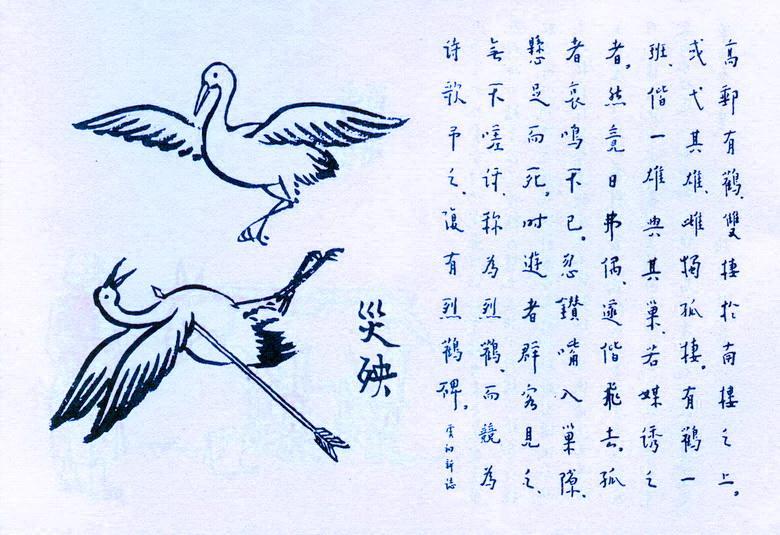 高郵有鸛、雙棲於南樓之上。
或弋其雄、雌獨孤棲。有鸛一
班、偕一雄與其巢、若媒誘之
者。然竟日弗偶、遂偕飛去。孤
者哀鳴不已。忽鑽嘴入巢隙、
懸足而死。時遊者群客見之、
無不嗟訝、称為烈鸛、而競為
詩歌弔之、復有烈鸛碑。虞初新誌
災殃